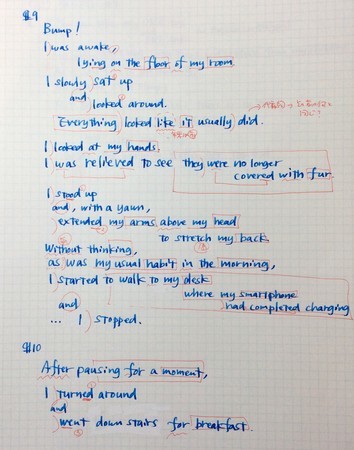 §9
Bump!
I was awake,
lying on the floor of my room.
I slowly sat up
and looked around.
Everything looked like it usually did.
I looked at my hands.
I was relieved to see they were no longer
covered with fur.
I stood up
and, with a yawn,
extended my arms above my head
to stretch my back.
Without thinking,
as was my usual habit in the morning,
I started to walk to my desk
where my smartphone
had completed charging
and
... I stopped.
§10
After pausing for a moment,
I turned around
and
went down stairs for breakfast.